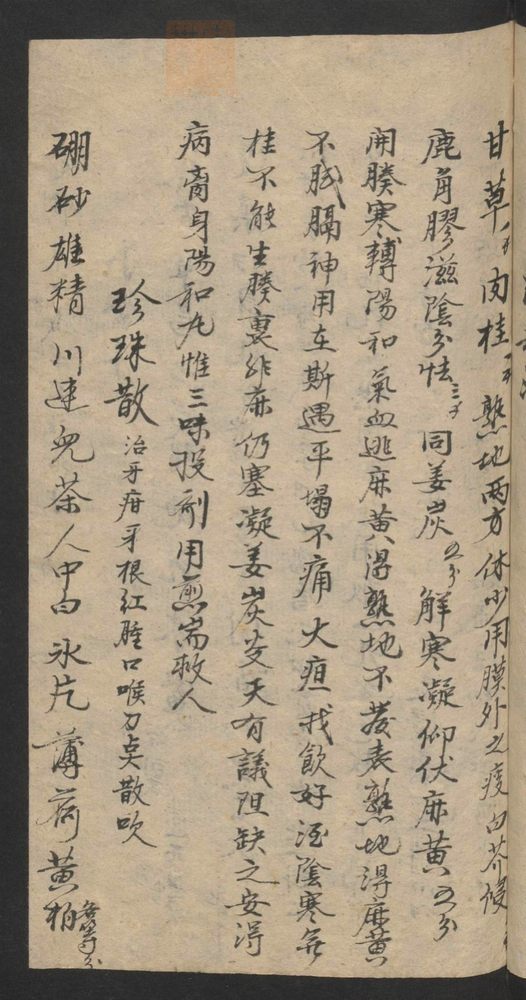 甘草 肉桂 熟地兩方休少用膜外之痰白芥
鹿角膠滋陰 怯三 同姜炭五分 解寒凝仰伏麻黄五分
開腠寒轉陽和氣血 麻黄得熟地不發表熟地得麻黄
不膩膈神用在斯遇平塌不痛大疽我飲好 陰寒無
桂不能生腠裏非麻仍塞凝姜炭 天有議阻缺之安得
病 身陽和丸惟三味投 用 救人
珍珠散 治牙疳牙根紅腫口喉 散吹
硼砂 雄精 川連 兒茶 人中白 冰片 薄荷 黄柏 各等分